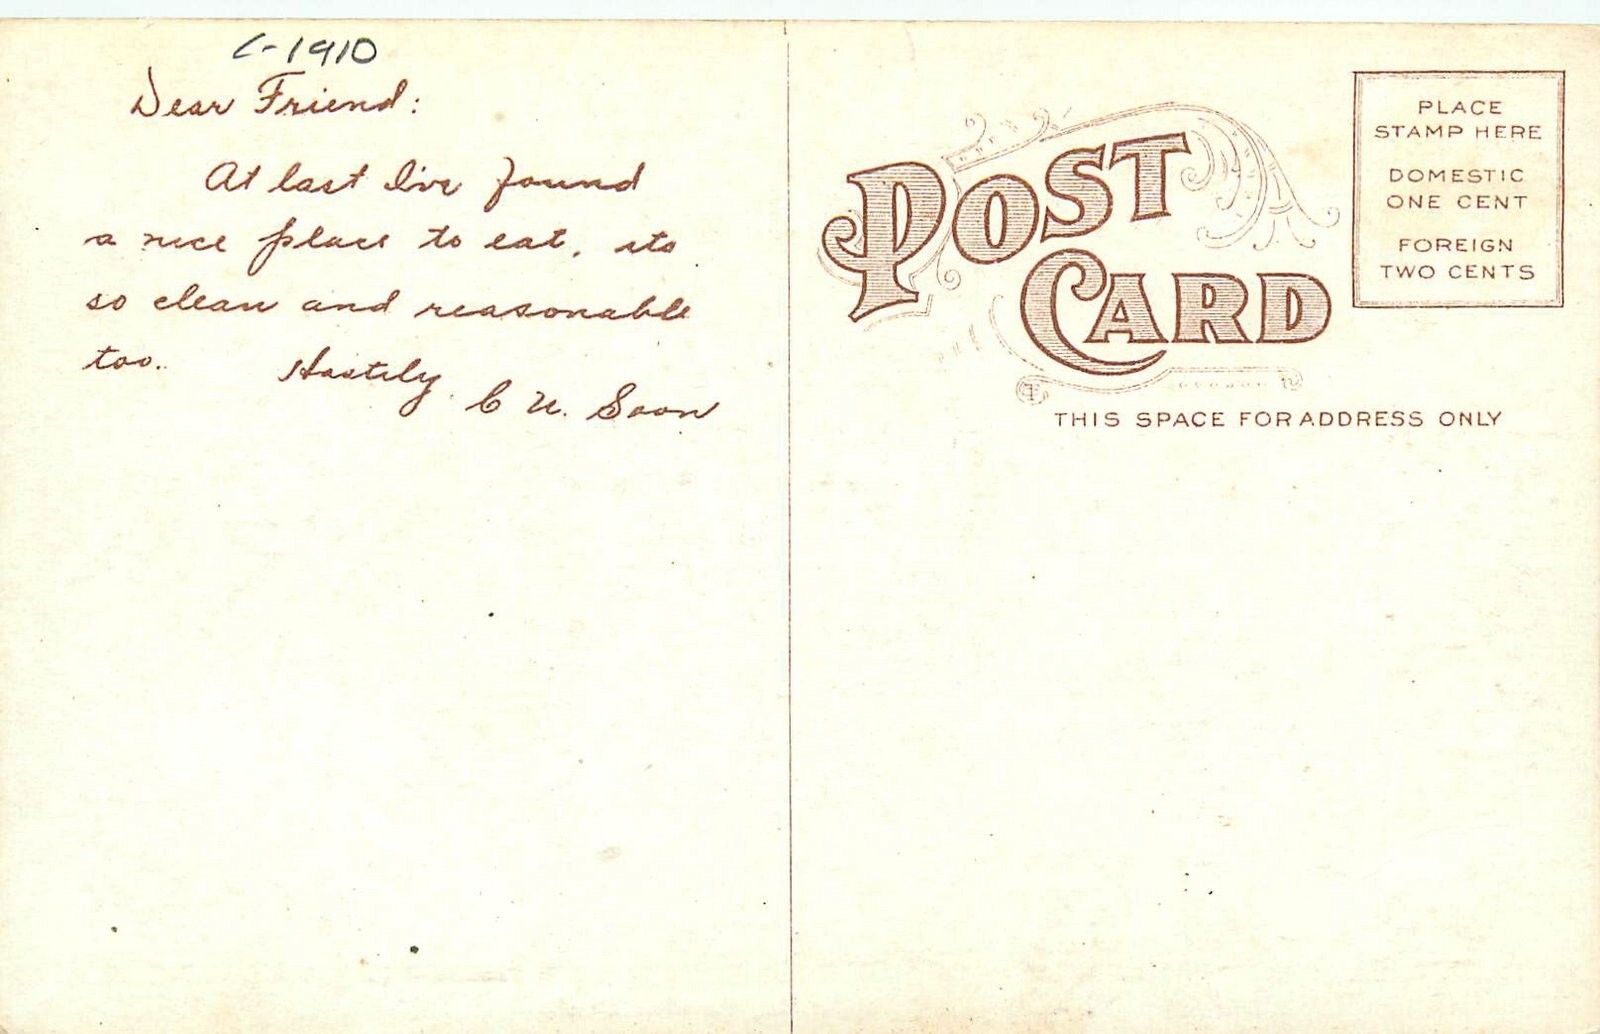 C-1910
Dear Friend:
At last I've found
a nice place to eat, its
so clean and reasonable
too.
Hastily
C U. Soon
POST
CARD
THIS SPACE FOR ADDRESS ONLY
PLACE
STAMP HERE
DOMESTIC
ONE CENT
FOREIGN
TWO CENTS